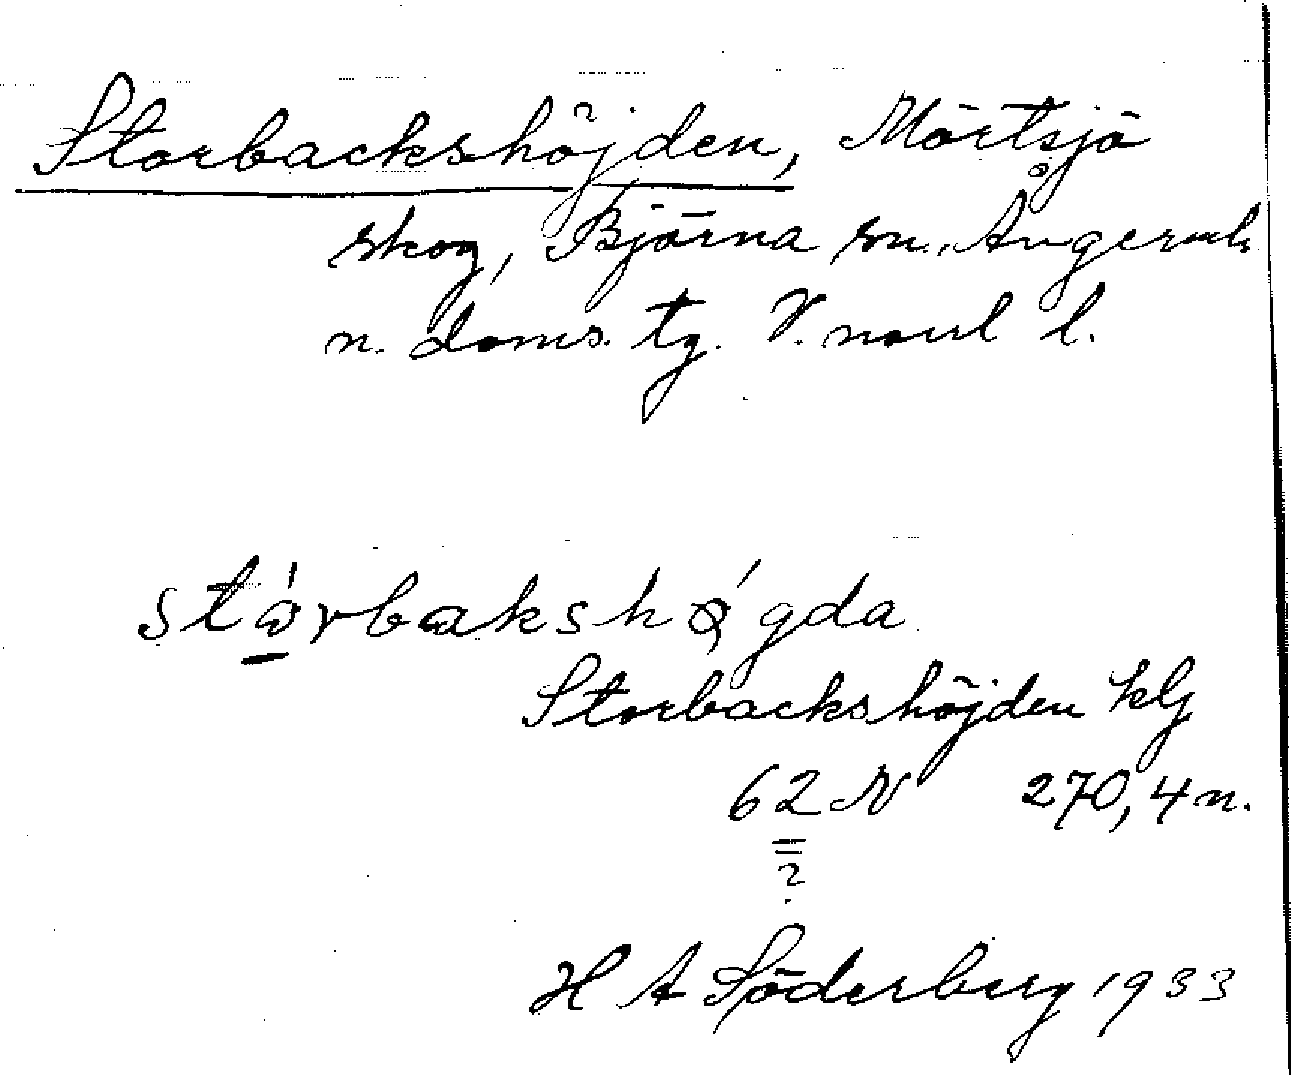 Storbackshöjden, Mörtsjö
skog, Björna sn. Ångermls
n. doms. tg. V. norrl l.
stǻrbakshǿgda
Storbackshöjden klj
62 N 270,4 m.
?
H A Söderberg 1933